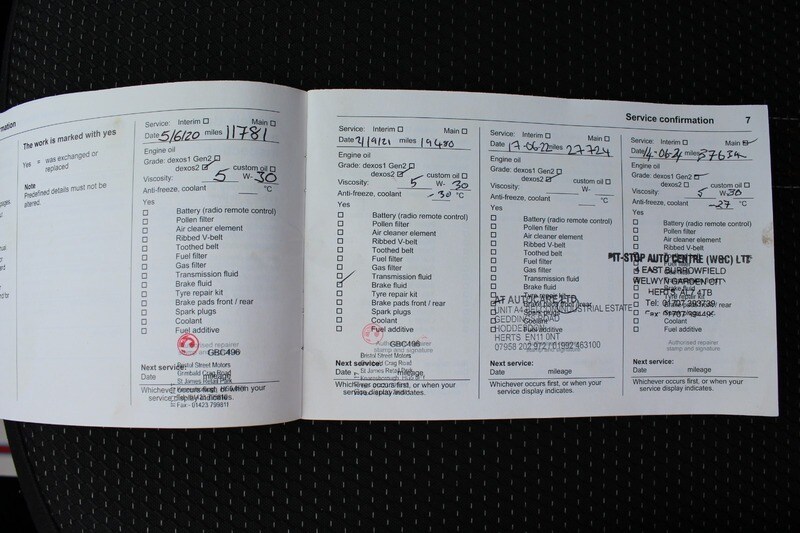 mation
The work is marked with yes
Yes = was exchanged or
replaced
Note
Predefined details must not be
altered.
Service: Interim ☐ Main ☐
Date 5/6/20 miles 11781
Engine oil
Grade: dexos1 Gen2 ☐
dexos2 ☑ custom oil ☐
Viscosity: 5 W- 30
Anti-freeze, coolant °C
Yes
☐ Battery (radio remote control)
☐ Pollen filter
☐ Air cleaner element
☐ Ribbed V-belt
☐ Toothed belt
☐ Fuel filter
☐ Gas filter
☐ Transmission fluid
☐ Brake fluid
☐ Tyre repair kit
☐ Brake pads front / rear
☐ Spark plugs
☐ Coolant
☐ Fuel additive
GBC496
Bristol Street Motors
Grimbald Crag Road
St James Retail Park
Next service:
Date mileage
Whichever occurs first, or when your
service display indicates.
Fax - 01423 799811
Service confirmation 7
Service: Interim ☐ Main ☐
Date 21/9/21 miles 19480
Engine oil
Grade: dexos1 Gen2 ☐
dexos2 ☑ custom oil ☐
Viscosity: 5 W- 30
Anti-freeze, coolant - 30 °C
Yes
☐ Battery (radio remote control)
☐ Pollen filter
☐ Air cleaner element
☐ Ribbed V-belt
☐ Toothed belt
☐ Fuel filter
☐ Gas filter
☐ Transmission fluid
☑ Brake fluid
☐ Tyre repair kit
☐ Brake pads front / rear
☐ Spark plugs
☐ Coolant
☐ Fuel additive
Authorised repairer
stamp and signature
GBC496
Bristol Street Motors
Grimbald Crag Road
St James Retail Park
Next service:
Date mileage
Whichever occurs first, or when your
service display indicates.
Service: Interim ☐ Main ☐
Date 17-06-22 miles 27724
Engine oil
Grade: dexos1 Gen2 ☐
dexos2 ☑ custom oil ☐
Viscosity: W-
Anti-freeze, coolant °C
Yes
☐ Battery (radio remote control)
☐ Pollen filter
☐ Air cleaner element
☐ Ribbed V-belt
☐ Toothed belt
☐ Fuel filter
☐ Gas filter
☐ Transmission fluid
☐ Brake fluid
☐ Tyre repair kit
AT AUTOCARE LTD
INDUSTRIAL ESTATE
HODDESDON
HERTS EN11 0NT
07958 202 972 / 01992 463100
Next service:
Date mileage
Whichever occurs first, or when your
service display indicates.
Service: Interim ☐ Main ☑
Engine oil
Grade: dexos1 Gen2 ☑
dexos2 ☐ custom oil ☐
Viscosity: 5 W- 30
Anti-freeze, coolant -27 °C
Yes
☐ Battery (radio remote control)
☐ Pollen filter
☐ Air cleaner element
☐ Ribbed V-belt
PIT-STOP AUTO CENTRE (WGC) LTD
4 EAST BURROWFIELD
WELWYN GARDEN CITY
HERTS. AL7 4TB
Tel: 01707 393739
☐ Spark plugs
☐ Coolant
☐ Fuel additive
Authorised repairer
stamp and signature
Next service:
Date mileage
Whichever occurs first, or when your
service display indicates.